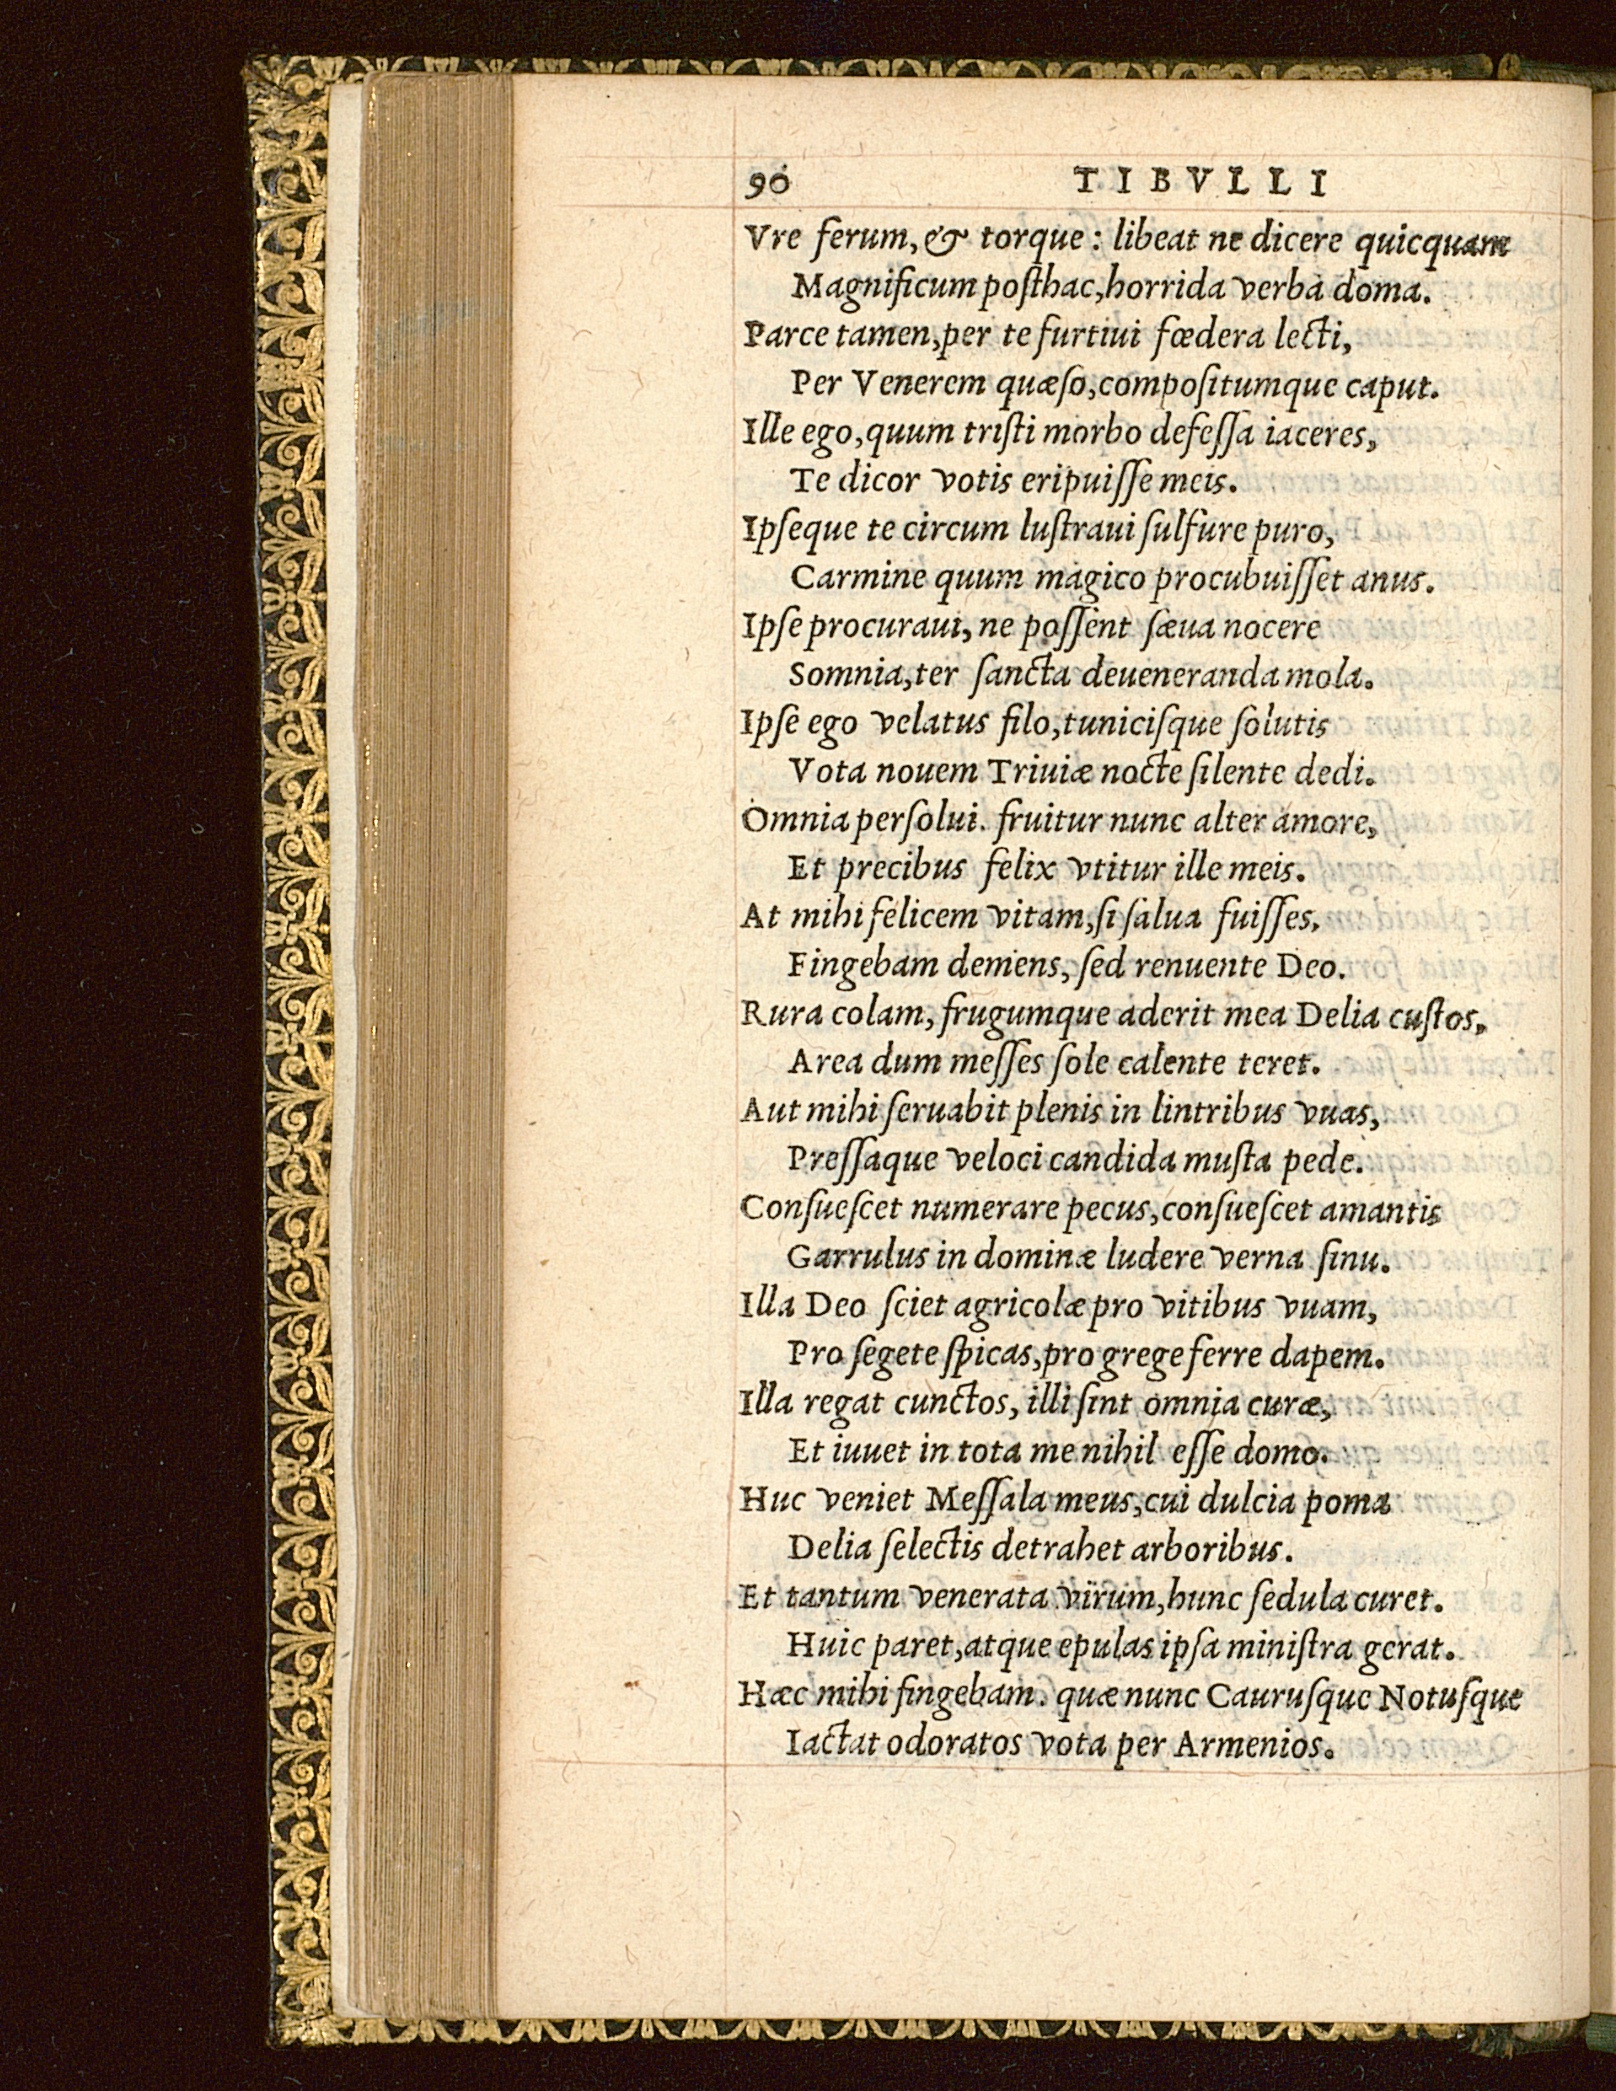 90 TIBVLLI
Vre ferum, & torque : libeat ne dicere quicquam
Magnificum poſthac, horrida verba doma.
Parce tamen, per te furtiui fœdera lecti,
Per Venerem quæſo, compoſitumque caput.
Ille ego, quum triſti morbo defeſſa iaceres,
Te dicor votis eripuiſſe meis.
Ipſeque te circum luſtraui ſulfure puro,
Carmine quum magico procubuiſſet anus.
Ipſe procuraui, ne poſſent ſæua nocere
Somnia, ter ſancta deueneranda mola.
Ipſe ego velatus filo, tuniciſque ſolutis
Vota nouem Triuiæ nocte ſilente dedi.
Omnia perſolui. fruitur nunc alter amore,
Et precibus felix vtitur ille meis.
At mihi felicem vitam, ſi ſalua fuiſſes,
Fingebam demens, ſed renuente Deo.
Rura colam, frugumque aderit mea Delia cuſtos,
Area dum meſſes ſole calente teret.
Aut mihi ſeruabit plenis in lintribus vuas,
Preſſaque veloci candida muſta pede.
Conſueſcet numerare pecus, conſueſcet amantis
Garrulus in dominæ ludere verna ſinu.
Illa Deo ſciet agricolæ pro vitibus vuam,
Pro ſegete ſpicas, pro grege ferre dapem.
Illa regat cunctos, illi ſint omnia curæ,
Et iuuet in tota me nihil eſſe domo.
Huc veniet Meſſala meus, cui dulcia poma
Delia ſelectis detrahet arboribus.
Et tantum venerata virum, hunc ſedula curet.
Huic paret, atque epulas ipſa miniſtra gerat.
Hæc mihi fingebam. quæ nunc Cauruſque Notuſque
Iactat odoratos vota per Armenios.